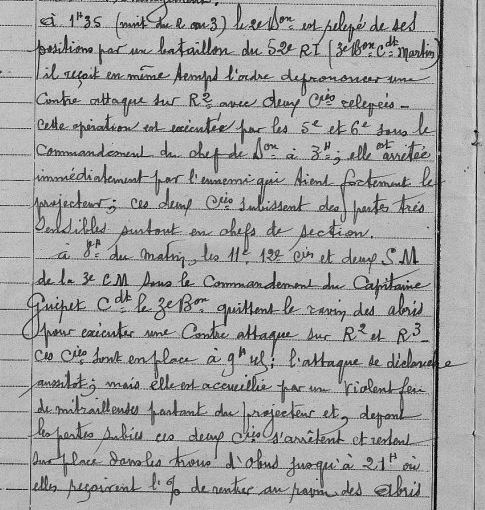 à 1ᴴ35 (nuit du 2 au 3) le 2e Bᵒⁿ est relevé de ses
positions par un bataillon du 52e RI (3e Bᵒⁿ Cᵈᵗ Martin)
il reçoit en même temps l'ordre de prononcer une
Contre attaque sur R² avec deux Cⁱᵉˢ relevées -
cette opération est exécutée par les 5e et 6e sous le
Commandement du chef de Bᵒⁿ à 3ᴴ; elle est arrêtée
immédiatement par l'ennemi qui tient fortement le
projecteur; ces deux Cⁱᵉˢ subissent des pertes très
sensibles surtout en chefs de section.
à 7ᴴ du matin, les 11e, 12e Cⁱᵉˢ et deux S.M
de la 3e CM sous le Commandement du Capitaine
Guipet Cᵈᵗ le 3e Bᵒⁿ quittent le ravin des abris
pour exécuter une Contre attaque sur R² et R³ -
ces Cⁱᵉˢ sont en place à 9ᴴ45; l'attaque se déclanche
aussitôt; mais elle est accueillie par un violent feu
de mitrailleuses partant du projecteur et, devant
les pertes subies ces deux Cⁱᵉˢ s'arrêtent et restent
sur place dans les trous d'obus jusqu'à 21ᴴ où
elles reçoivent l'% de rentrer au ravin des abris